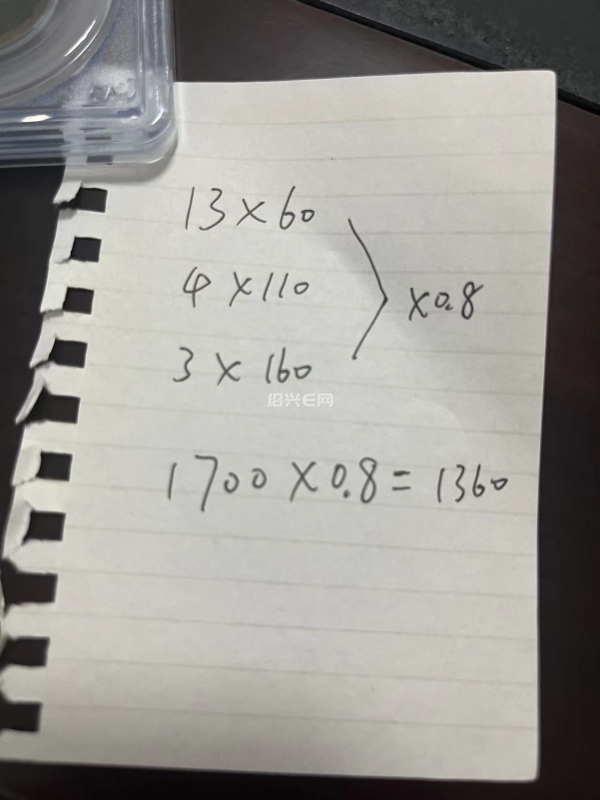 13×60
4×110
×0.8
3×160
绍兴E网
1700×0.8=1360